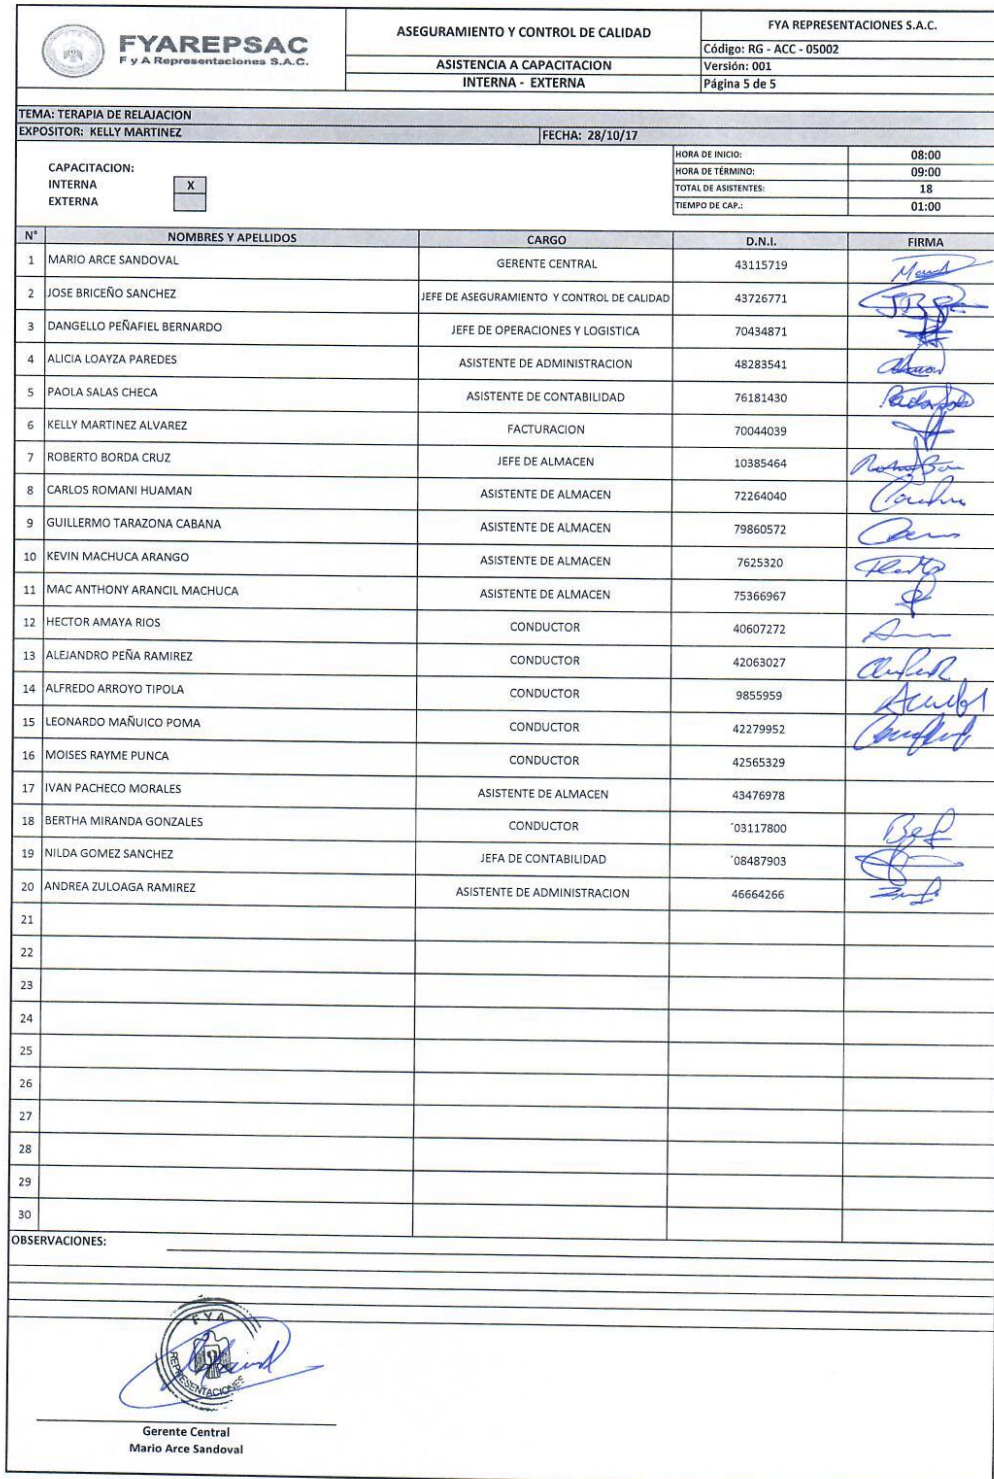 FYAREPSAC
F y A Representaciones S.A.C.
ASEGURAMIENTO Y CONTROL DE CALIDAD
ASISTENCIA A CAPACITACION
INTERNA - EXTERNA
FYA REPRESENTACIONES S.A.C.
Código: RG - ACC - 05002
Versión: 001
Página 5 de 5
TEMA: TERAPIA DE RELAJACION
EXPOSITOR: KELLY MARTINEZ FECHA: 28/10/17
CAPACITACION:
INTERNA X
EXTERNA
HORA DE INICIO: 08:00
HORA DE TÉRMINO: 09:00
TOTAL DE ASISTENTES: 18
TIEMPO DE CAP.: 01:00
N° NOMBRES Y APELLIDOS CARGO D.N.I. FIRMA
1 MARIO ARCE SANDOVAL GERENTE CENTRAL 43115719
2 JOSE BRICEÑO SANCHEZ JEFE DE ASEGURAMIENTO Y CONTROL DE CALIDAD 43726771
3 DANGELLO PEÑAFIEL BERNARDO JEFE DE OPERACIONES Y LOGISTICA 70434871
4 ALICIA LOAYZA PAREDES ASISTENTE DE ADMINISTRACION 48283541
5 PAOLA SALAS CHECA ASISTENTE DE CONTABILIDAD 76181430
6 KELLY MARTINEZ ALVAREZ FACTURACION 70044039
7 ROBERTO BORDA CRUZ JEFE DE ALMACEN 10385464
8 CARLOS ROMANI HUAMAN ASISTENTE DE ALMACEN 72264040
9 GUILLERMO TARAZONA CABANA ASISTENTE DE ALMACEN 79860572
10 KEVIN MACHUCA ARANGO ASISTENTE DE ALMACEN 7625320
11 MAC ANTHONY ARANCIL MACHUCA ASISTENTE DE ALMACEN 75366967
12 HECTOR AMAYA RIOS CONDUCTOR 40607272
13 ALEJANDRO PEÑA RAMIREZ CONDUCTOR 42063027
14 ALFREDO ARROYO TIPOLA CONDUCTOR 9855959
15 LEONARDO MAÑUICO POMA CONDUCTOR 42279952
16 MOISES RAYME PUNCA CONDUCTOR 42565329
17 IVAN PACHECO MORALES ASISTENTE DE ALMACEN 43476978
18 BERTHA MIRANDA GONZALES CONDUCTOR ´03117800
19 NILDA GOMEZ SANCHEZ JEFA DE CONTABILIDAD ´08487903
20 ANDREA ZULOAGA RAMIREZ ASISTENTE DE ADMINISTRACION 46664266
21
22
23
24
25
26
27
28
29
30
OBSERVACIONES:
FYA
REPRESENTACIONES
Gerente Central
Mario Arce Sandoval